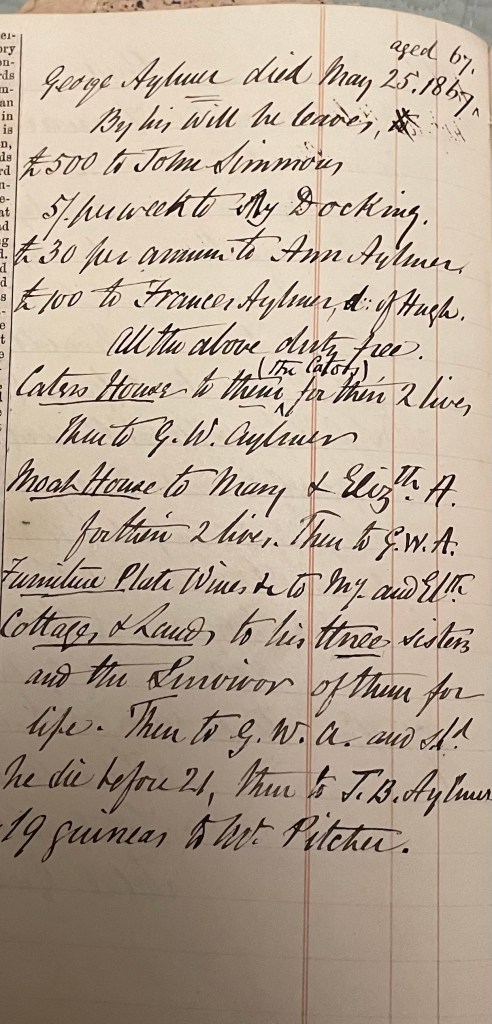 aged 67.
George Aylmer died May 25. 1867
By his Will he leaves,
£500 to John Simmons
5/. per week to My Docking.
£30 per annum to Ann Aylmer.
£100 to Frances Aylmer, d: of Hugh.
All the above duty free.
(the Cators)
Caters House to them ^ for their 2 lives
Then to G. W. Aylmer
Moat House to Mary & Elizth. A.
for their 2 lives. Then to G. W. A.
Furniture Plate Wines &c to My. and Elth.
Cottages & Lands to his three sisters
and the Survivor of them for
life. Then to G. W. A. and shd.
he die before 21, then to J. B. Aylmer
19 guineas to Wm. Pitcher.